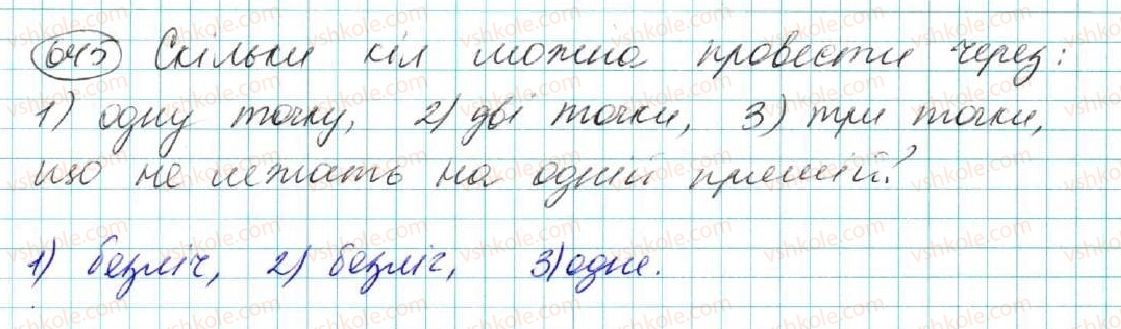 645 Скільки кіл можна провести через:
1) одну точку, 2) дві точки, 3) три точки,
що не лежать на одній прямій?
1) безліч, 2) безліч, 3) одне.